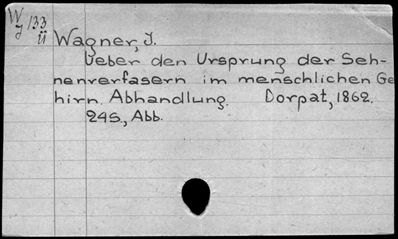 W/133
J ü
Wagner, J.
Ueber den Ursprung der Seh-
nenverfasern im menschlichen Ge
hirn. Abhandlung. Dorpat, 1862.
24S., Abb.